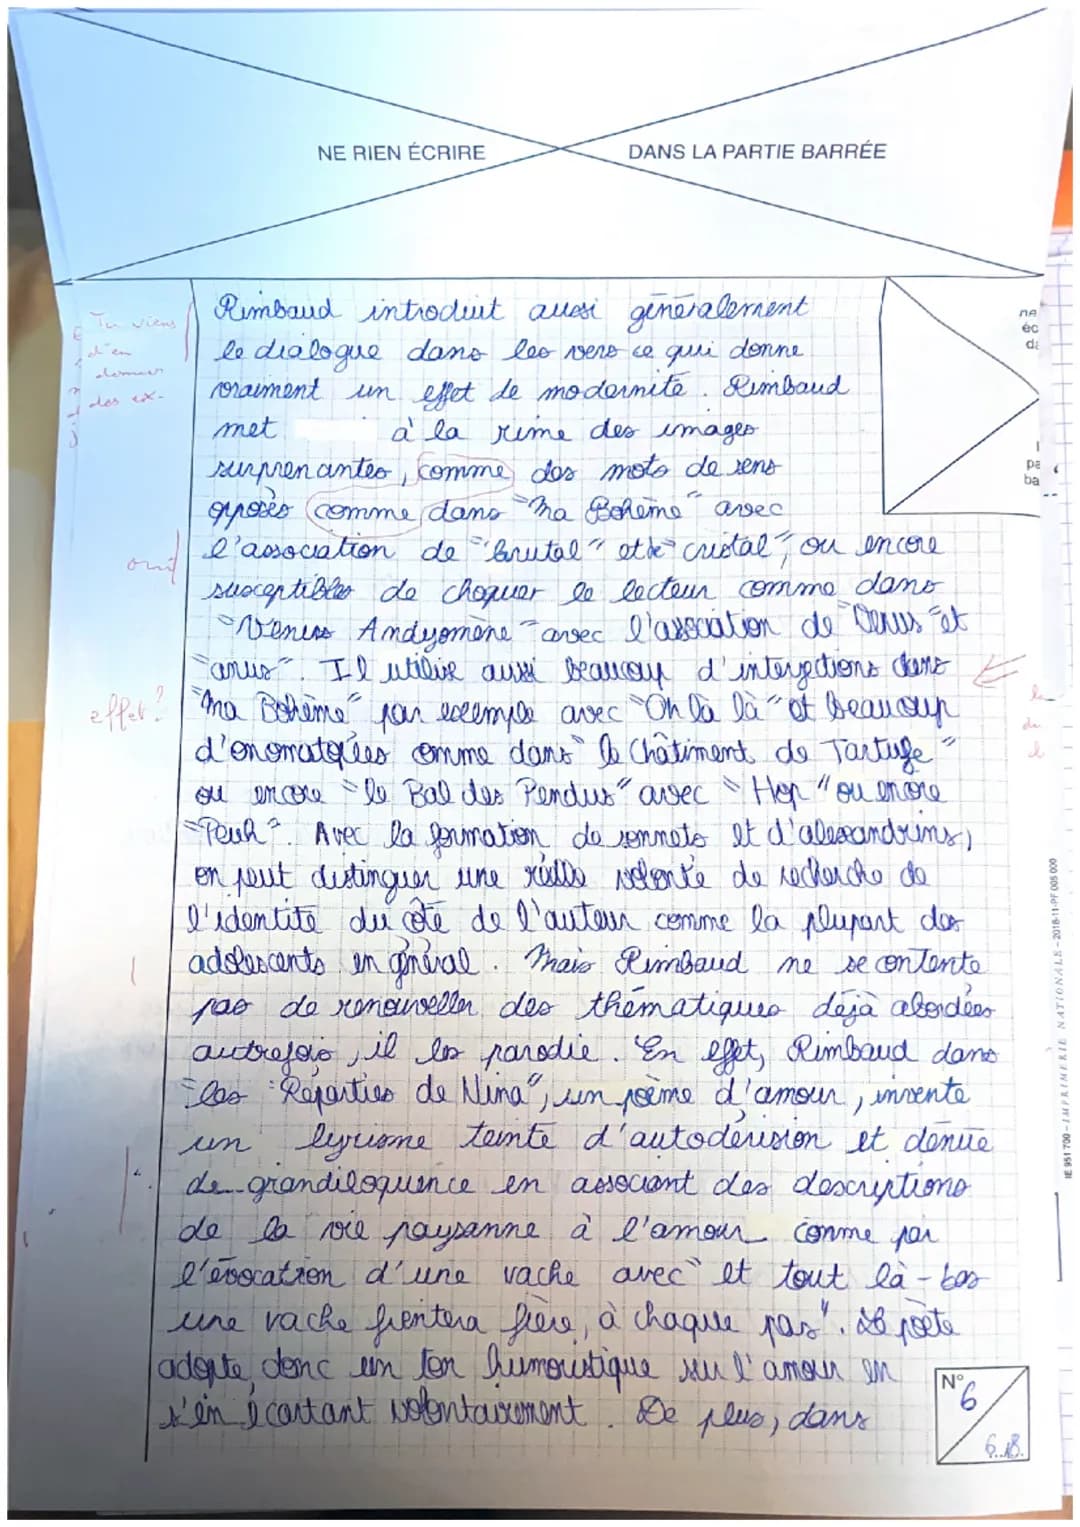 NE RIEN ÉCRIRE DANS LA PARTIE BARRÉE
Rimbaud introduit aussi généralement
Tu viens
d'en
donner
des ex.
le dialogue dans les vers ce qui donne
vraiment un effet de modernité. Rimbaud
met à la rime des images
surprenantes, comme des mots de sens
opposés comme dans "Ma Bohème" avec
l'association de "brutal" et de "cristal", ou encore
oui
susceptibles de choquer le lecteur comme dans
"Vénus Andyomène" avec l'association de "Vénus" et
"anus". Il utilise aussi beaucoup d'interjections dans
effet?
"Ma Bohème" par exemple avec "Oh là là" et beaucoup
d'onomatopées comme dans "le Châtiment de Tartufe"
ou encore "le Bal des Pendus" avec "Hop" ou encore
"Peuh". Avec la formation de sonnets et d'alexandrins,
on peut distinguer une réelle volonté de recherche de
l'identité du côté de l'auteur comme la plupart des
adolescents en général. Mais Rimbaud ne se contente
pas de renouveller des thématiques déjà abordées
autrefois, il les parodie. En effet, Rimbaud dans
"les Réparties de Nina", un poème d'amour, invente
un lyrisme teinté d'autodérision et dénué
de grandiloquence en associant des descriptions
de la vie paysanne à l'amour comme par
l'évocation d'une vache avec "et tout là-bas
une vache fientera fière, à chaque pas". Le poète
adopte donc un ton humoristique sur l'amour en
s'en écartant volontairement. De plus, dans
N° 6
6.18.
IE 951 700 - IMPRIMERIE NATIONALE - 2018-11-PF 005 000